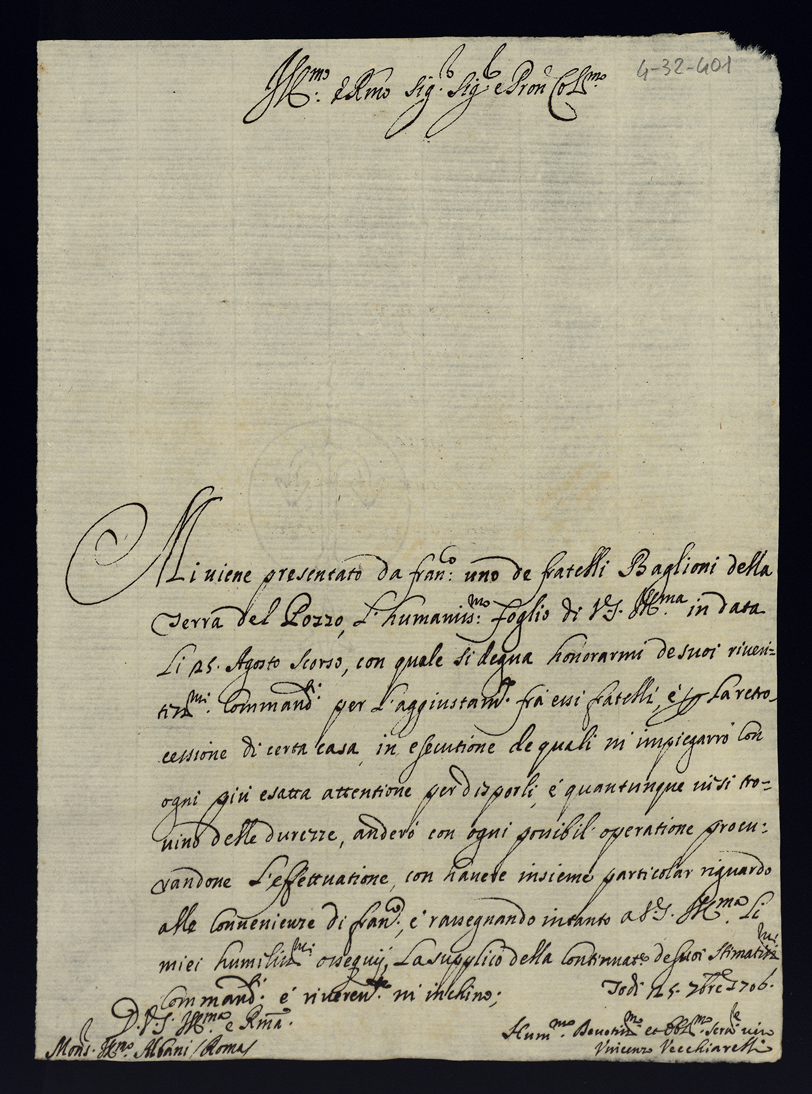 4-32-401
Ill.mo è Rmo Sig.r Sig.r e Pron Col.mo
Mi uiene presentato da fran.co: uno de fratelli Baglioni della
Terra del Pozzo, L'humaniss.mo: foglio di V.S. Ill.ma in data
Li 25. Agosto scorso, con quale si degna honorarmi de suoi riueri-
tiss.mi: Command.i: per L'aggiustam.to frà essi fratelli, è p La retro-
cessione di certa casa, in esecutione de quali m'impiegarrò con
ogni più esatta attentione per disporli, é quantunque ui si tro=
uino delle durezze, anderó con ogni possibil' operatione procu:
randone L'effettuatione, con hauere insieme particolar riguardo
alle Conuenienze di fran.co, é rassegnando intanto a V.S. Ill.ma Li
miei humiliss.mi ossequij, La supplico della Continuat.e de suoi stimatiss.mi
Command.i: é riueren.te m'inchino;
Todi 25. 7bre 1706.
D. V.S. Ill.ma e Rma.
Hum.mo: Deuotiss.mo et Obl.mo: Seru.e uero
Mons.r Ill.mo Albani /Roma/
Vincenzo Vecchiarelli